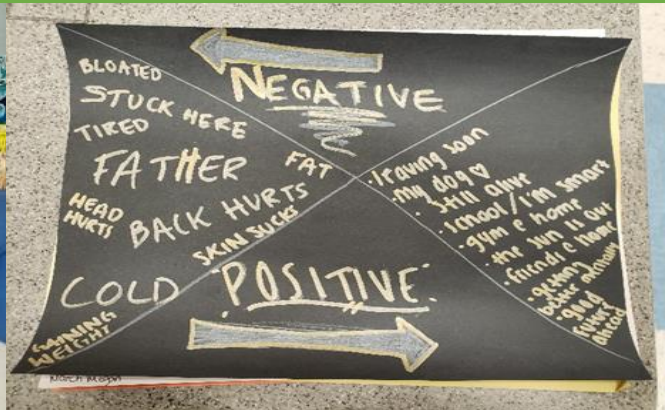 NEGATIVE
BLOATED
STUCK HERE
TIRED
FATHER
FAT
HEAD
HURTS
BACK HURTS
SKIN SUCKS
COLD
GAINING
WEIGHT
·leaving soon
·my dog ♡
·still alive
·school/I'm smart
·gym @ home
·the sun is out
·friends @ home
·getting
better mentally
·good
future
ahead
POSITIVE